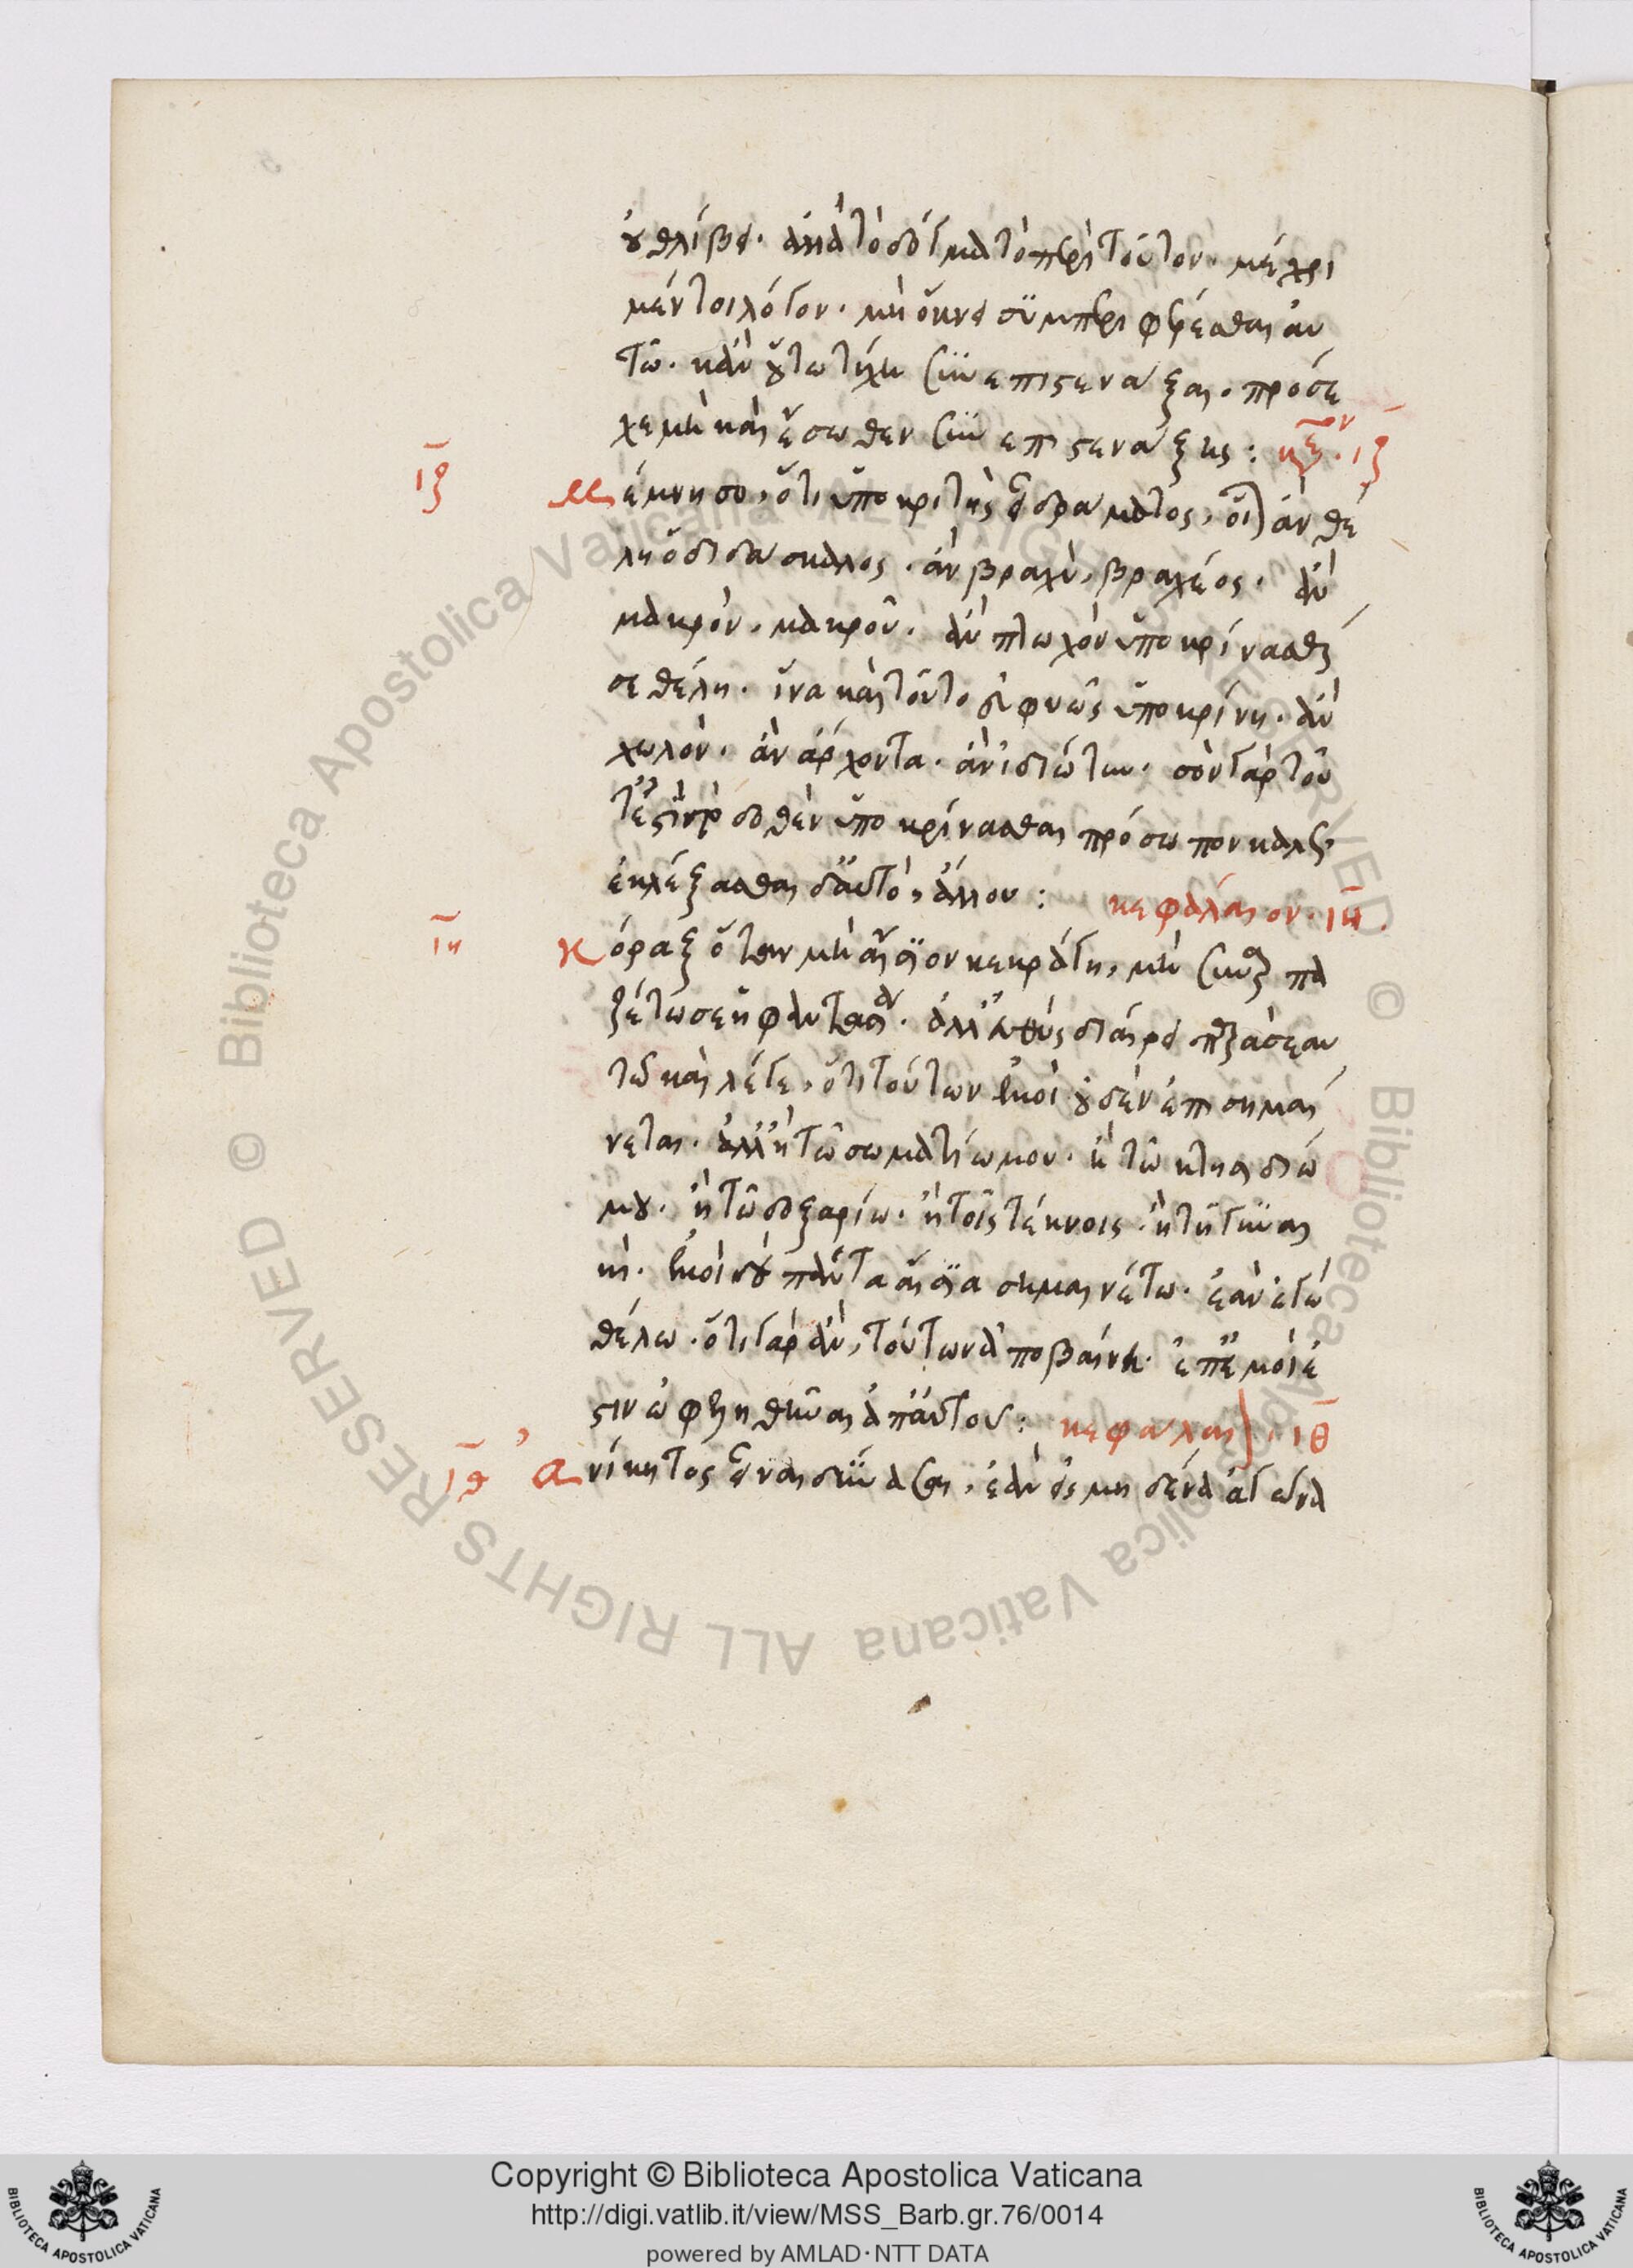 οὐ θλίβει. ἀλλὰ τὸ δόγμα τὸ περὶ τούτου. μέχρι
μέντοι λόγου. μὴ ὄκνει συμπεριφέρεσθαι αὐ
τῶ. κἂν οὕτω τύχη συνεπιστενάξαι. πρόσε
χε μὴ καὶ ἔσωθεν συνεπιστενάξης: κεφ. ιζ
ιζ μέμνησο, ὅτι ὑποκριτὴς εἶ δράματος, οἵου ἂν θέ
λη ὁ διδάσκαλος. ἂν βραχὺ, βραχέος. ἂν
μακρὸν, μακροῦ. ἂν πτωχὸν ὑποκρίνασθαί
σε θέλη. ἵνα καὶ τοῦτο εὐφυῶς ὑποκρίνη. ἂν
χωλὸν. ἂν ἄρχοντα. ἂν ἰδιώτην. σὸν γὰρ τοῦ
τ' ἔστι τὸ δοθὲν ὑποκρίνασθαι πρόσωπον καλῶς,
ἐκλέξασθαι δ' αὐτὸ, ἄλλου: κεφάλαιον. ιη.
ιη κόραξ ὅταν μὴ αἴσιον κεκράγη, μὴ συναρ πα
ζέτω σε ἡ φαντασία. ἀλλ' εὐθὺς διαίρει παρὰ σεαυ
τῶ καὶ λέγε, ὅτι τούτων ἐμοὶ οὐδὲν ἐπισημαί
νεται. ἀλλ' ἢ τῶ σωματίω μου. ἢ τῶ κτησιδίω
μου. ἢ τῶ δοξαρίω. ἢ τοῖς τέκνοις. ἢ τῆ γυναι
κί. ἐμοὶ δὲ πάντα αἴσια σημαινέτω. ἐὰν ἐγὼ
θέλω. ὅτι γὰρ ἂν, τούτων ἀποβαίνη. ἐπ' ἐμοί ἐ
στιν ὠφεληθῆναι ἀπ' αὐτοῦ: κεφαλαι. ιθ
ιθ ἀνίκητος εἶναι δύνασαι, ἐὰν εἰς μηδένα ἀγῶνα
Copyright © Biblioteca Apostolica Vaticana
http://digi.vatlib.it/view/MSS_Barb.gr.76/0014
powered by AMLAD·NTT DATA
BIBLIOTECA APOSTOLICA VATICANA
BIBLIOTECA APOSTOLICA VATICANA
© Biblioteca Apostolica Vaticana ALL RIGHTS RESERVED © Biblioteca Apostolica Vaticana ALL RIGHTS RESERVED